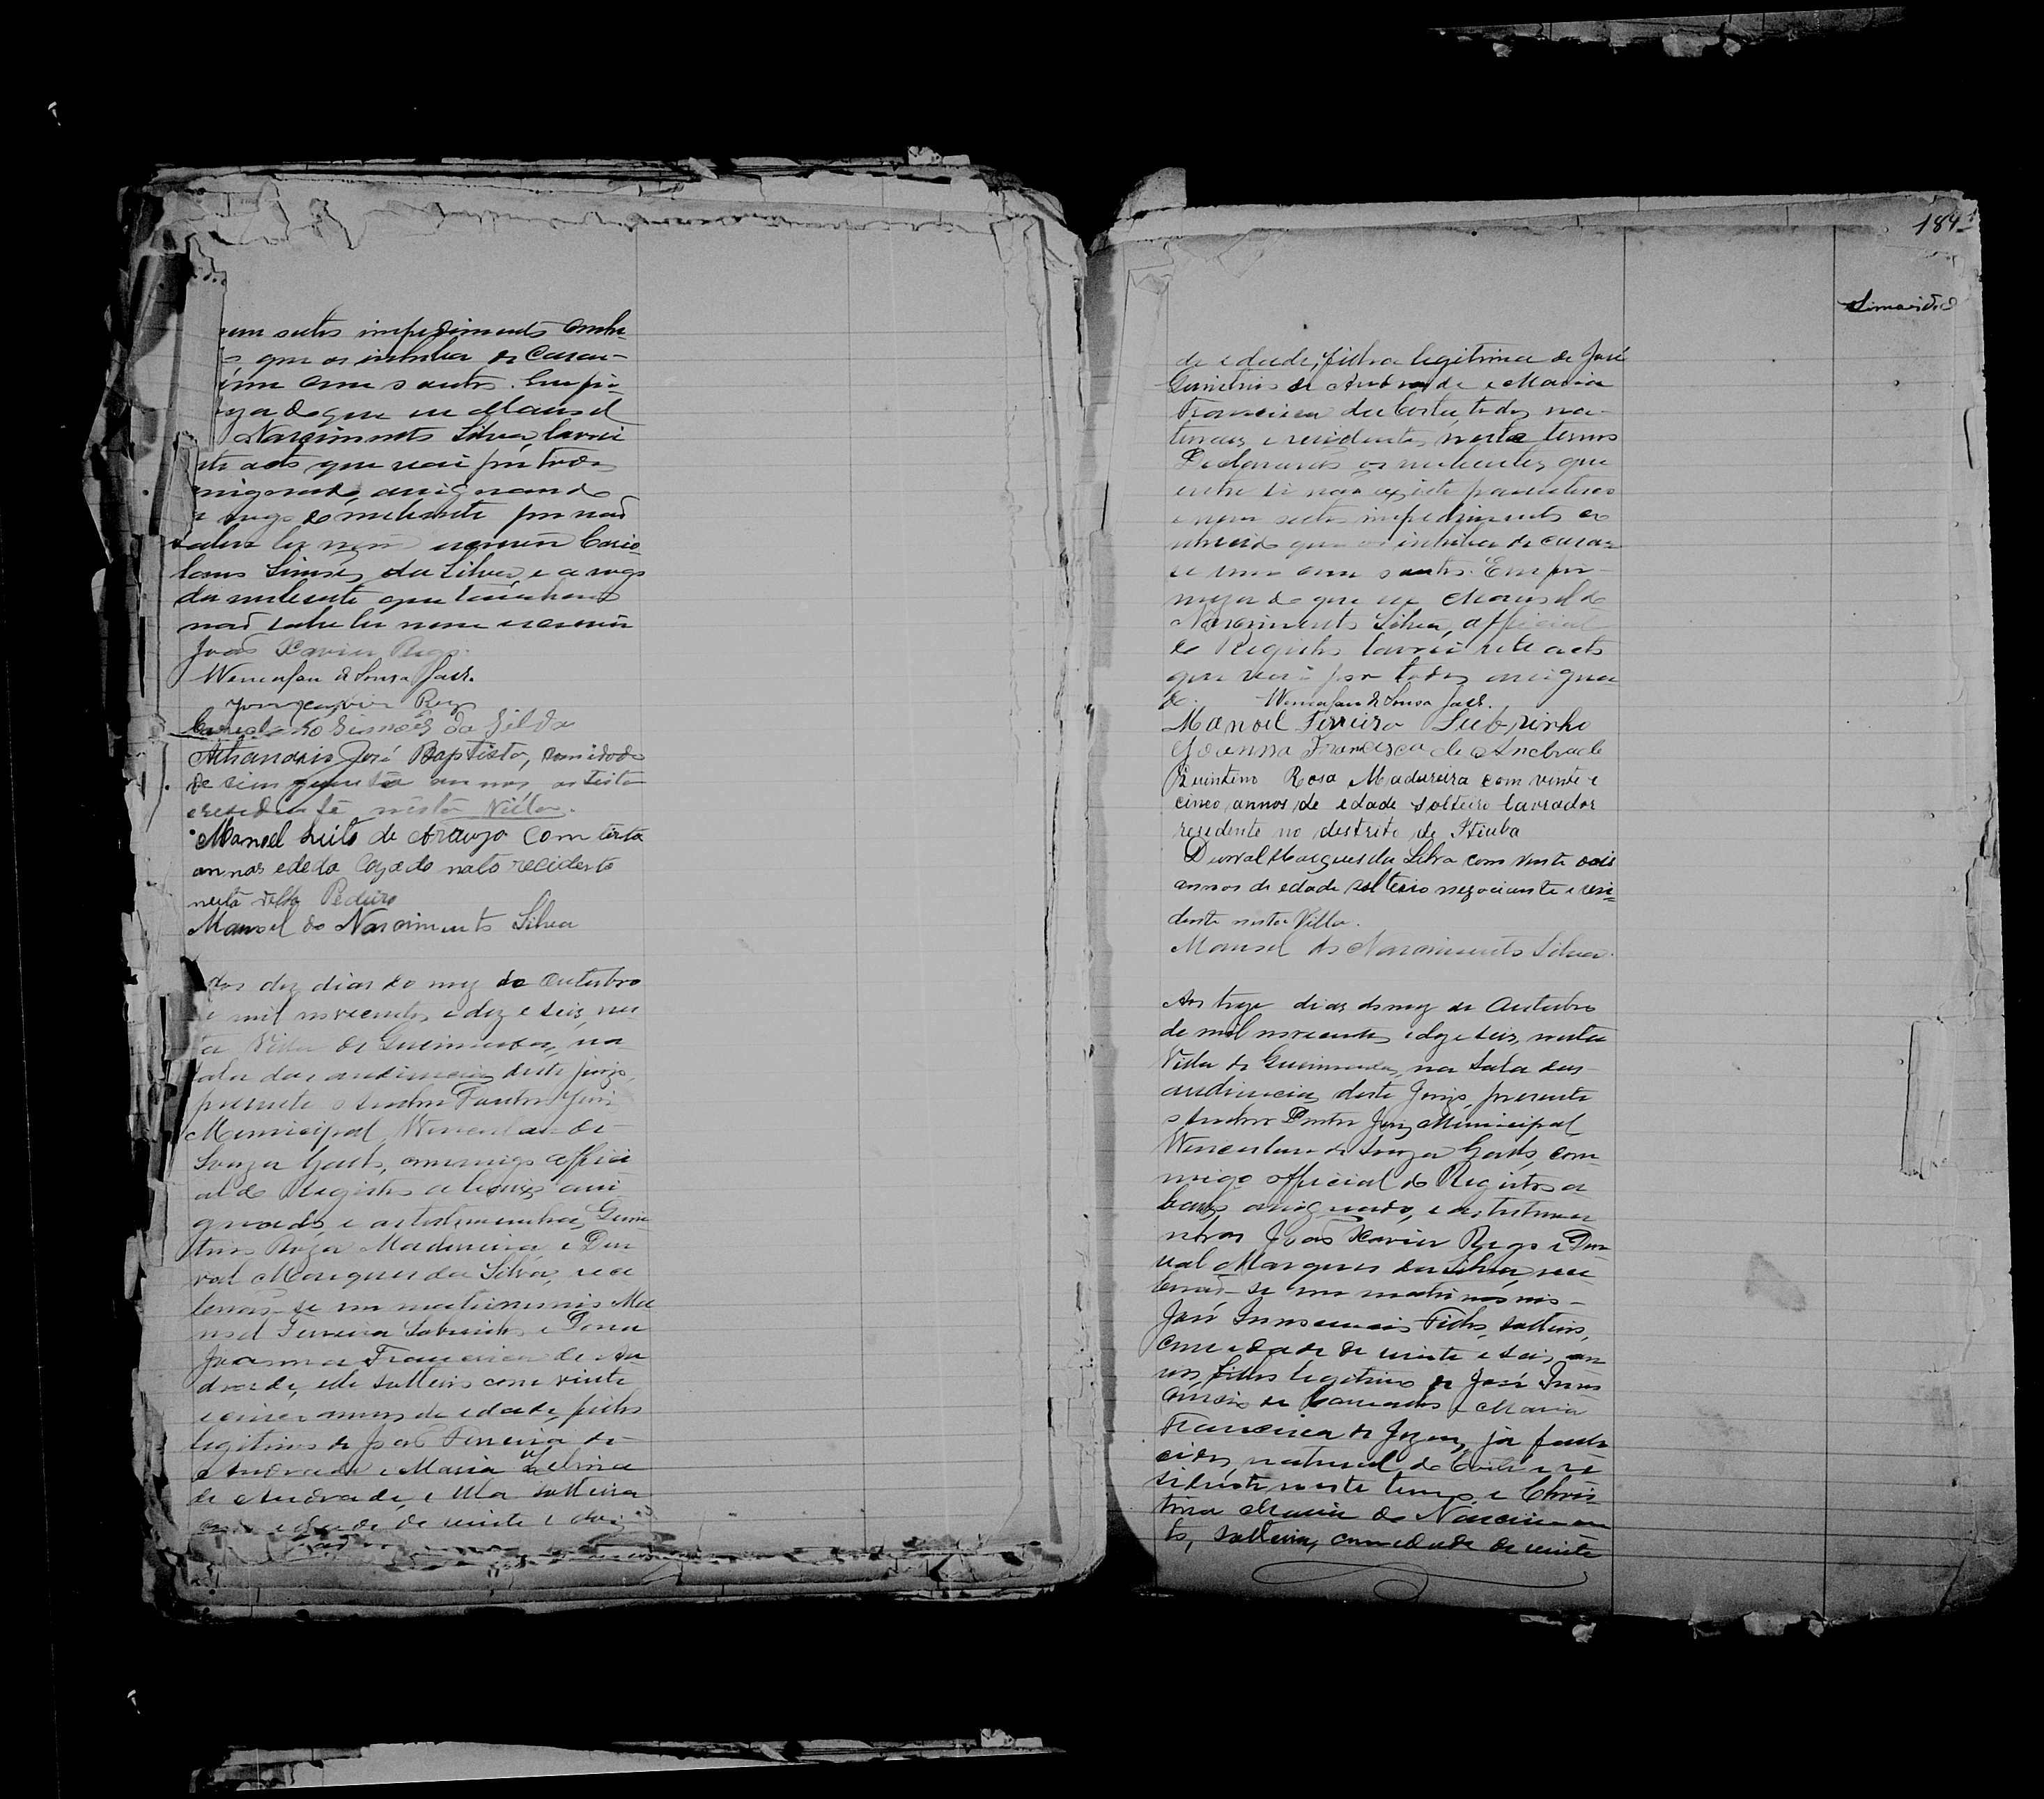 nem outro impedimento conhe-
que os inhiba de casar-
um com o outro. Em fir-
meza do que eu Manoel
Nascimento Silva, lavrei
este acto que vai por todos
assignado, assignando
a rogo do nubente por nao
saber ler nem escrever Corio-
lano Simões da Silva, e a rogo
da nubente que tambem
não sabe ler nem escrever
João Xavier Rego.
Wenceslau de Sousa
João Xavier Rego
Simões da Silva
Athanasio José Baptista, com idade
de cincoenta annos artista
e residente nesta Villa.
Manoel de Araujo com
annos ededa Cazado nato recidente
nesta villa Pedreiro
Manoel do Nascimento Silva
Aos dez dias do mez de Outubro
de mil novecentos e dezeseis, nes-
ta Villa de Queimadas, na
sala das audiencias deste juizo,
presente o senhor Doutor Juiz
Municipal Wenceslau de
Souza commigo offici-
al do Registro abaixo assi-
gnado e as testemunhas, Quin-
tino Roza Madureira e Dur-
val Marques da Silva, rece-
beram-se em matrimonio Ma-
noel Ferreira Sobrinho e Dona
Joanna Francisca de An-
drade, elle solteiro com vinte
e cinco annos de edade, filho
legitimo de João Ferreira de
Andrade e Maria
de Andrade, e ella solteira
com edade de vinte e dois
184
de edade, filha legitima de José
de Andrade e Maria
Francisca da Costa, todos na-
turaes e residentes neste termo
Declararão os nubentes que
entre si não existe parentesco
e nem outro impedimento co-
nhecido que os inhiba de casar-
se um com o outro. Em fir-
meza do que eu Manoel do
Nascimento Silva, official
do Registro lavrei este acto
que vai por todos assigna-
do. Wenceslau de Sousa
Manoel Ferreira Subrinho
Joanna Francisca de Andrade
Quintino Rosa Madureira com vinte e
cinco annos de edade solteiro lavrador
residente no destrito de Itiuba
Durval Marques da Silva com vinte dois
annos de edade solteiro negociante e resi-
dente nesta Villa.
Manoel do Nascimento Silva.
Aos treze dias do mez de Outubro
de mil novecentos e dezeseis, nesta
Villa de Queimadas, na sala das
audiencias deste Juizo, presente
o senhor Doutor Juiz Municipal
Wenceslau de Souza com-
migo official do Registro a-
baixo assignado, e as testemu-
nhas João Xavier Rego e Dur-
val Marques da Silva, rece-
beram-se em matrimonio
José Innocencio Filho, solteiro,
com edade de vinte e seis an-
nos, filho legitimo de José Inno-
cencio de e Maria
Francisca de já falle-
cidos, natural do e re-
sidente neste termo, e Chris-
tina Maria do Nascimen-
to, solteira, com edade de vinte